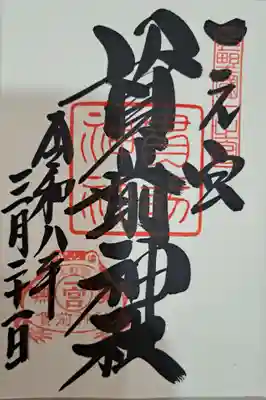 一之宮
貫前神社
令和八年
三月二十一日